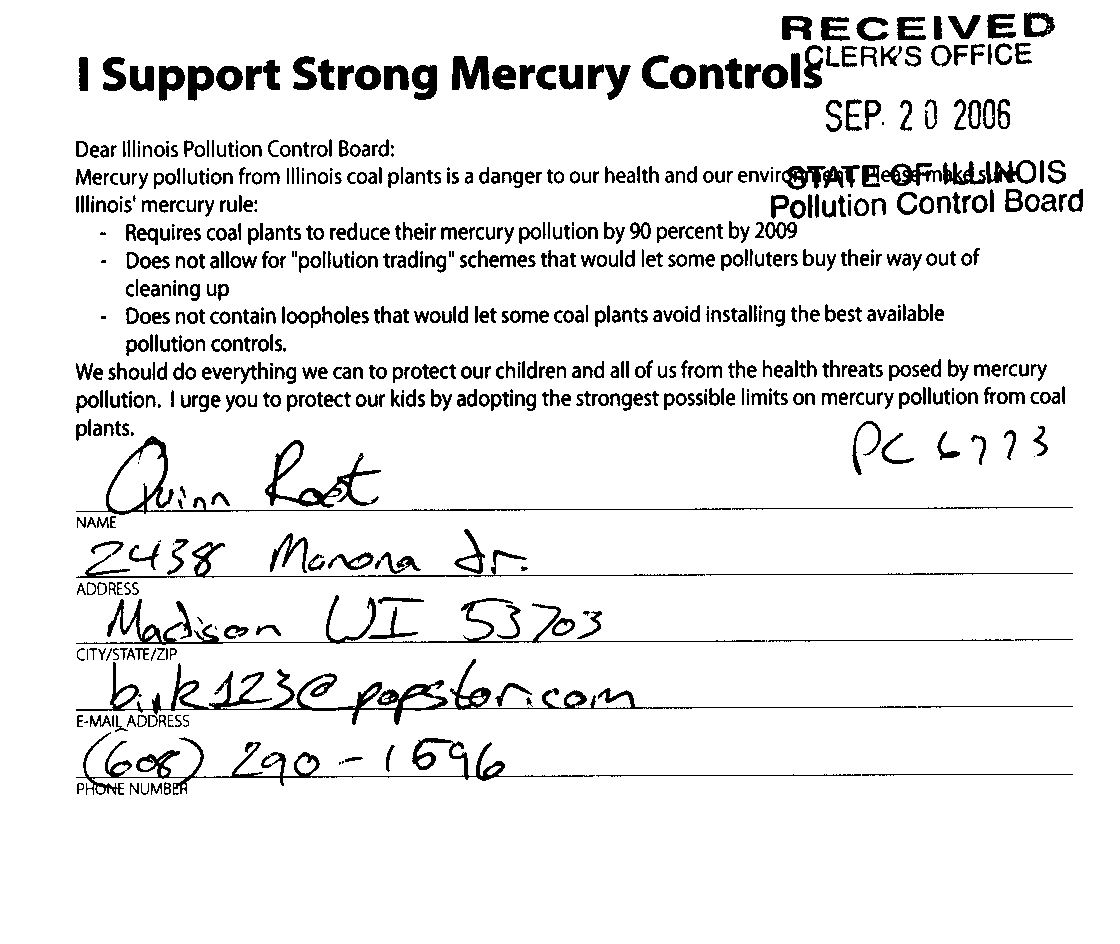 RECEIVED
CLERK'S OFFICE
I Support Strong Mercury Controls
SEP. 20 2006
Dear Illinois Pollution Control Board:
Mercury pollution from Illinois coal plants is a danger to our health and our environment. Please make sure
STATE OF ILLINOIS
Illinois' mercury rule:
Pollution Control Board
- Requires coal plants to reduce their mercury pollution by 90 percent by 2009
- Does not allow for "pollution trading" schemes that would let some polluters buy their way out of
cleaning up
- Does not contain loopholes that would let some coal plants avoid installing the best available
pollution controls.
We should do everything we can to protect our children and all of us from the health threats posed by mercury
pollution. I urge you to protect our kids by adopting the strongest possible limits on mercury pollution from coal
plants.
PC 6773
Quinn
NAME
2438 Monona dr.
ADDRESS
Madison WI 53703
CITY/STATE/ZIP
E-MAIL ADDRESS
(608) 290-1596
PHONE NUMBER